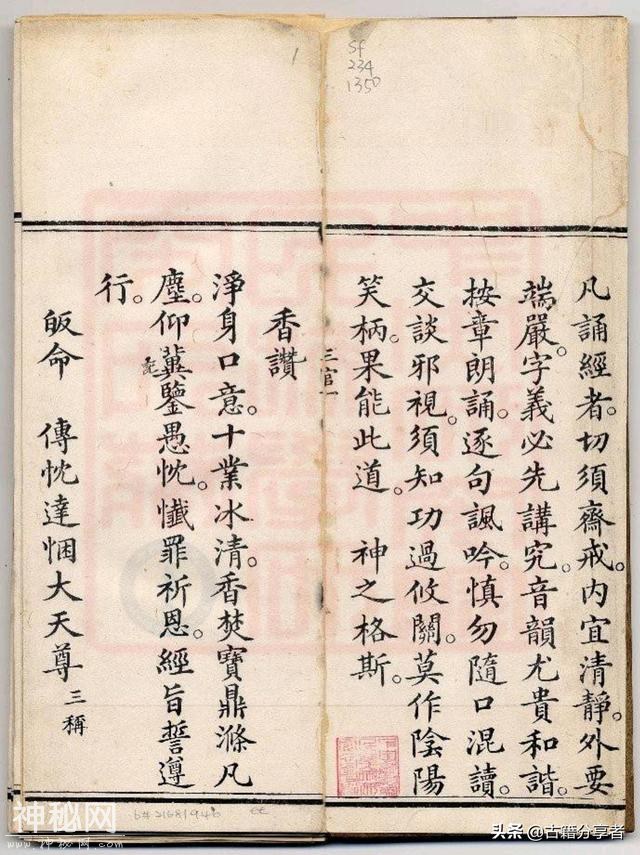 Sf
234
1350
凡誦經者。切須齋戒。内宜清靜。外要
端嚴。字義必先講究。音韻尤貴和諧。
按章朗誦。逐句諷吟。慎勿隨口混讀。
交談邪視。須知功過攸關。莫作陰陽
笑柄。果能此道。 神之格斯。
三官 一
1
香讚
淨身口意。十業冰清。香焚寶鼎滌凡
塵。仰冀鑒愚忱。懺罪祈恩。經旨誓遵
行。
皈命 傳忱達悃大天尊 三稱
b# 21681946
神秘网
www.shenmiw.com
头条 @古籍分享者